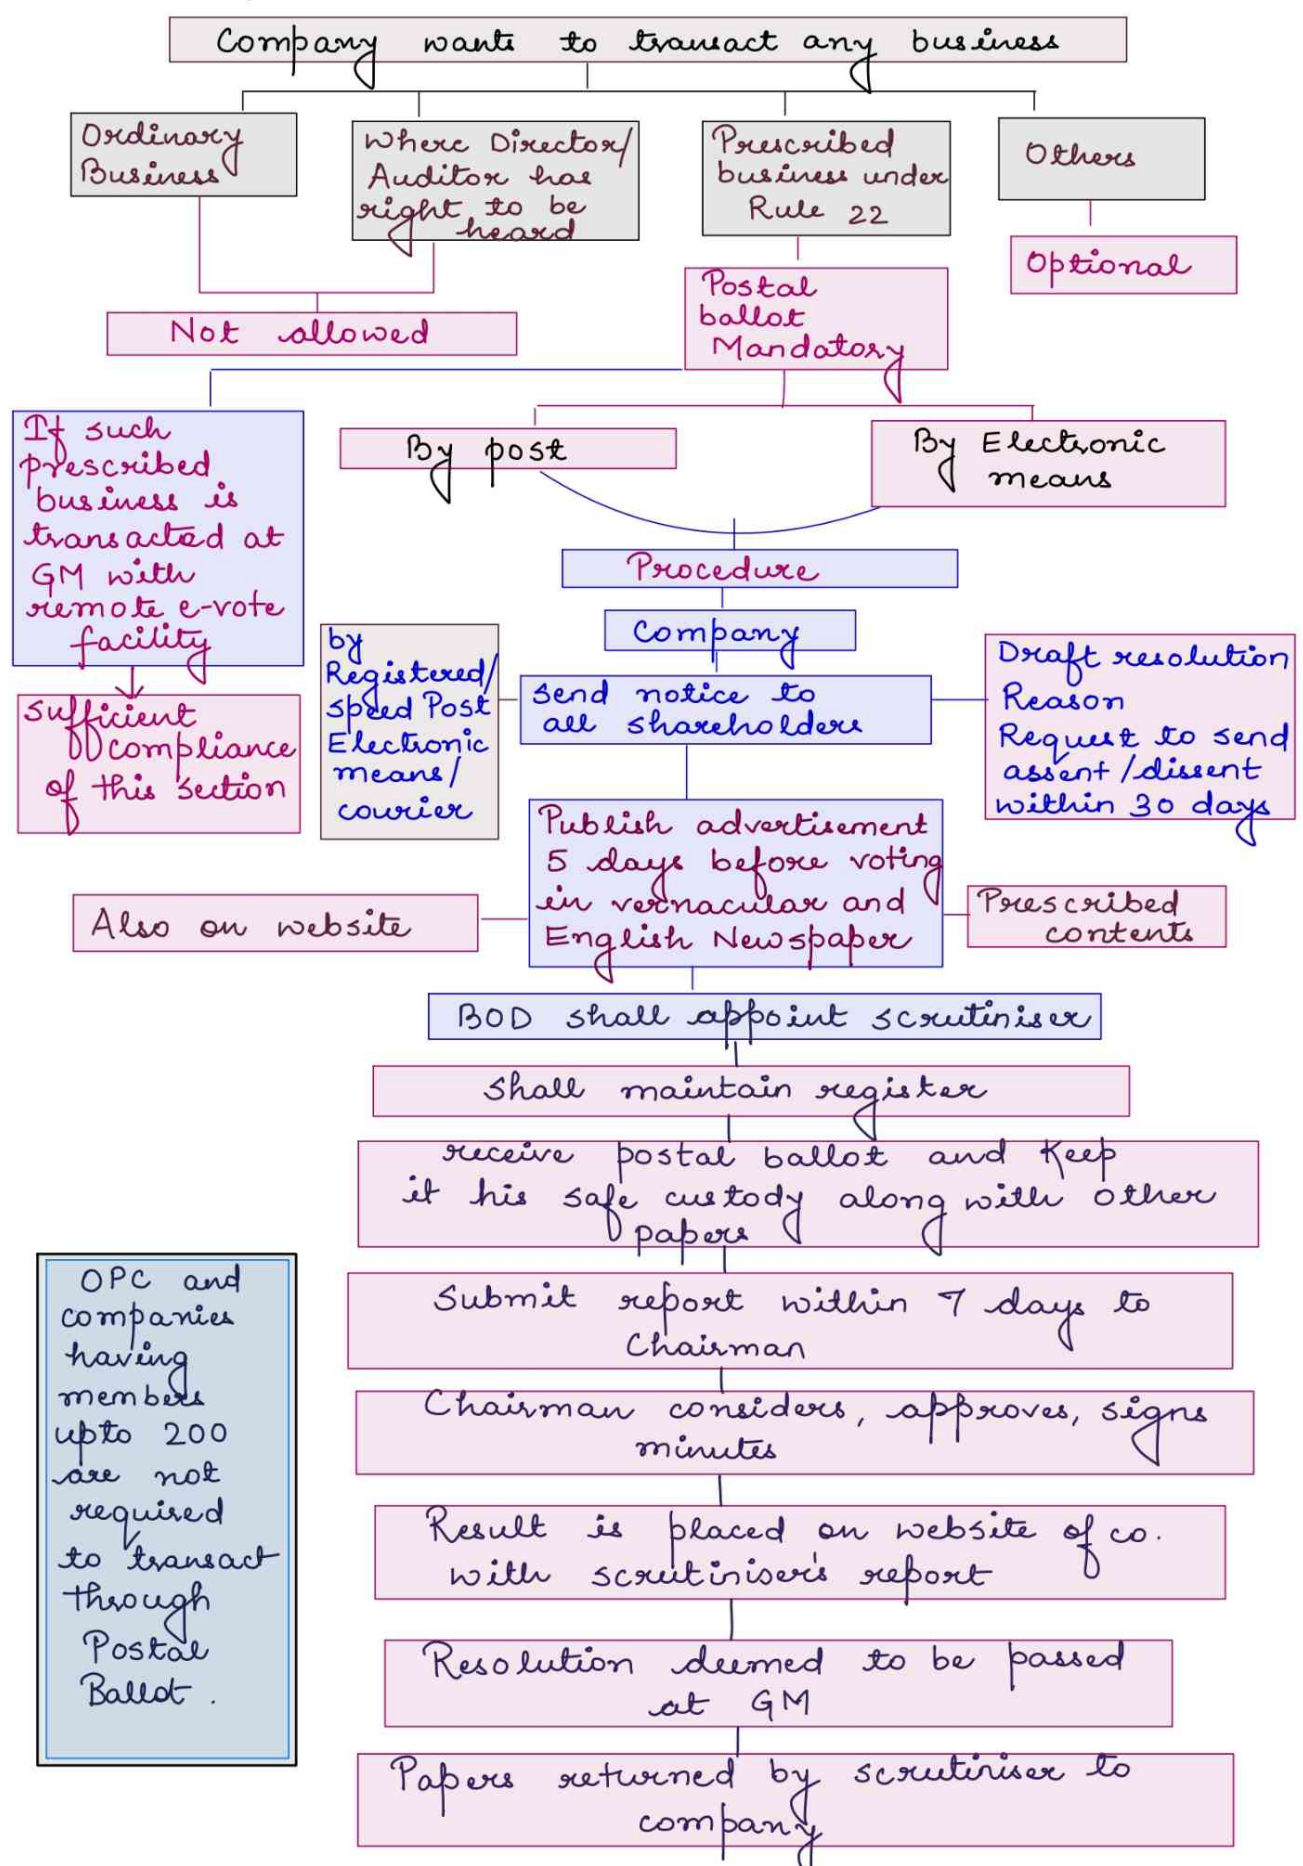 Company wants to transact any business
Ordinary
Business
Where Director/
Auditor has
right to be
heard
Prescribed
business under
Rule 22
Others
Optional
Not allowed
Postal
ballot
Mandatory
If such
prescribed
business is
transacted at
GM with
remote e-vote
facility
Sufficient
compliance
of this section
By post
By Electronic
means
Procedure
Company
by
Registered/
speed Post
Electronic
means/
courier
Send notice to
all shareholders
Draft resolution
Reason
Request to send
assent/dissent
within 30 days
Publish advertisement
5 days before voting
in vernacular and
English Newspaper
Also on website
Prescribed
contents
BOD shall appoint scrutiniser
Shall maintain register
receive postal ballot and Keep
it his safe custody along with other
papers
Submit report within 7 days to
Chairman
Chairman considers, approves, signs
minutes
Result is placed on website of co.
with scrutiniser's report
Resolution deemed to be passed
at GM
Papers returned by scrutiniser to
company
OPC and
companies
having
members
upto 200
are not
required
to transact
through
Postal
Ballot.